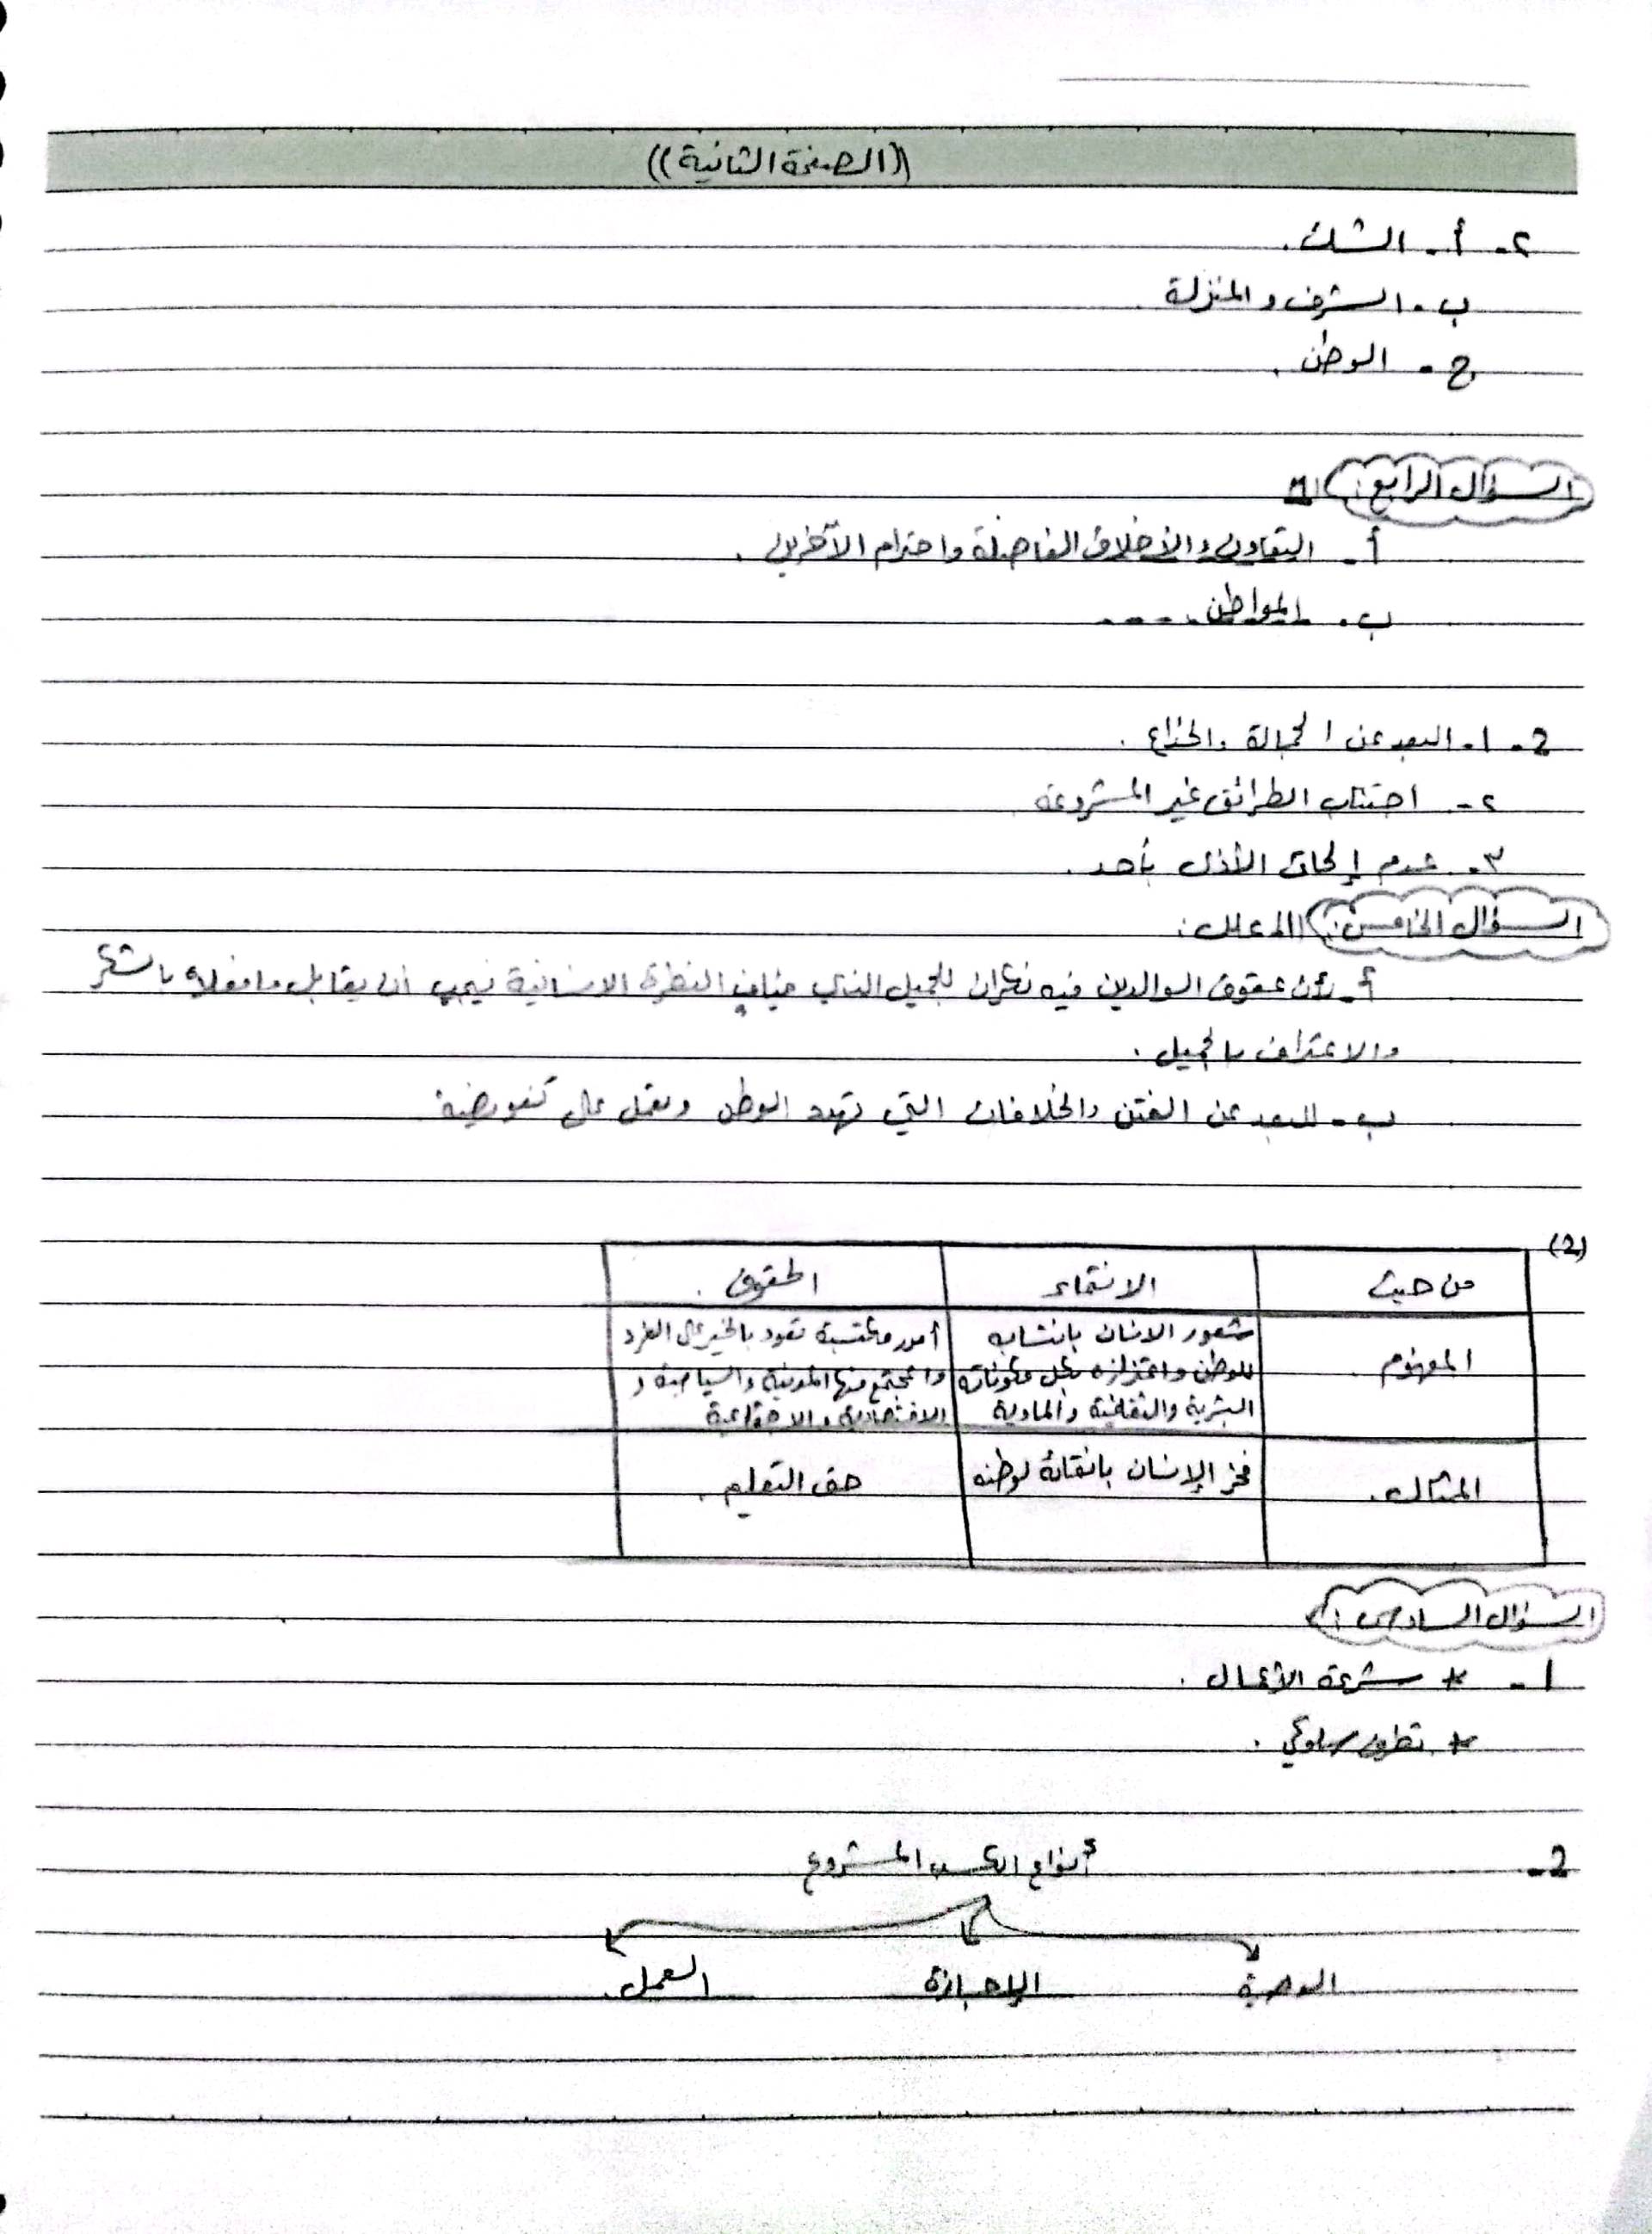 ((الصفحة الثانية))
٢- أ- الشك.
ب- الشرف والمنزلة.
ج- الوطن.
السؤال الرابع: ١
أ- التعاون والأخلاق الفاضلة واحترام الآخرين.
ب- المواطن.....
2- ١- البعد عن الحيالة والخداع.
٢- اجتناب الطرائق غير المشروعة
٣- عدم إلحاق الأذى بأحد.
السؤال الخامس: علل:
أ- لأن عقوق الوالدين فيه نكران للجميل الذي ينافي الفطرة الانسانية فيجب ان يقابل بالشكر
والاعتراف بالجميل.
ب- للبعد عن الفتن والخلافات التي تهدد الوطن وتعمل على تقويضه.
(2)
من حيث الانتماء الحقوق.
المفهوم. شعور الانسان بانتسابه للوطن واعتزازه بكل مكوناته البشرية والثقافية والمادية
أمور مكتسبة تعود بالخير على الفرد والمجتمع منها المدنية والسياسية و الاقتصادية والاجتماعية
المثال. فخر الإنسان بانتمائه لوطنه حق التعليم.
السؤال السادس:
1- * شرعة الأعمال.
* تطرف سلوكي.
2- أنواع الكسب المشروع
الوصية الإجارة العمل.